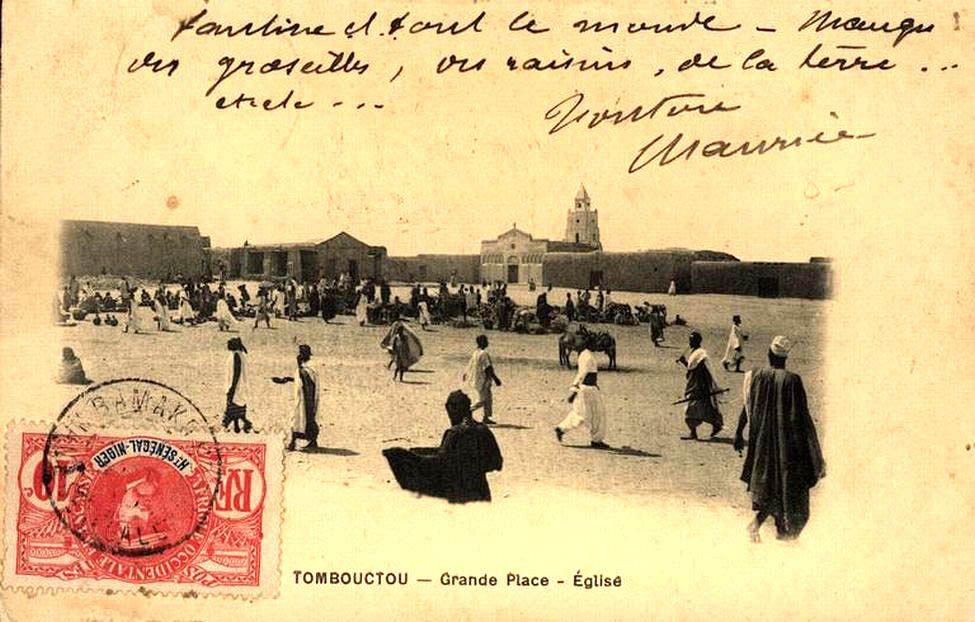 et tout le monde – Mangu
des groseilles, des raisins, de la terre ...
etc etc ...
Maurice
TOMBOUCTOU — Grande Place - Église
Ht SÉNÉGAL-NIGER
10
RF
AFRIQUE OCCIDENTALE FRANÇAISE
POSTES
BAMAKO